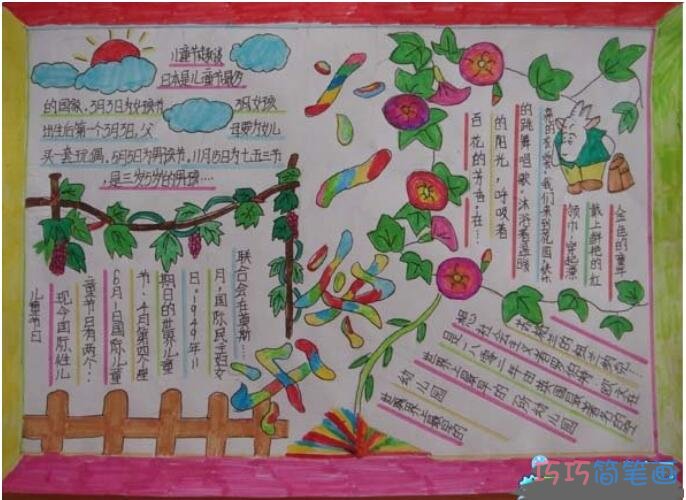 儿童节趣谈
日本是儿童节最多
的国家，3月3日为女孩节
出生后第一个3月3日，父 母要为女儿
买一套玩偶，5月5日为男孩节，11月15日为七五三节
，是三岁5岁的男孩…
儿童节日
现今国际性儿
童节日有两个：
6月1日国际儿童
节，4月第四个星
期日的世界儿童
日。1949年11
月，国际民主妇女
联合会在莫斯…
金色的童年
戴上鲜艳的红
领巾，穿起漂
亮的衣裳，我们来到花园，快乐
的跳舞唱歌，沐浴着温暖
的阳光，呼吸着
百花的芳香，在…
世界上最早的
幼儿园
世界上最早的一所幼儿园
是一八零二年由英国最著名的空
想社会主义者罗伯特·欧文在
苏格兰的纽兰纳克…
巧巧简笔画